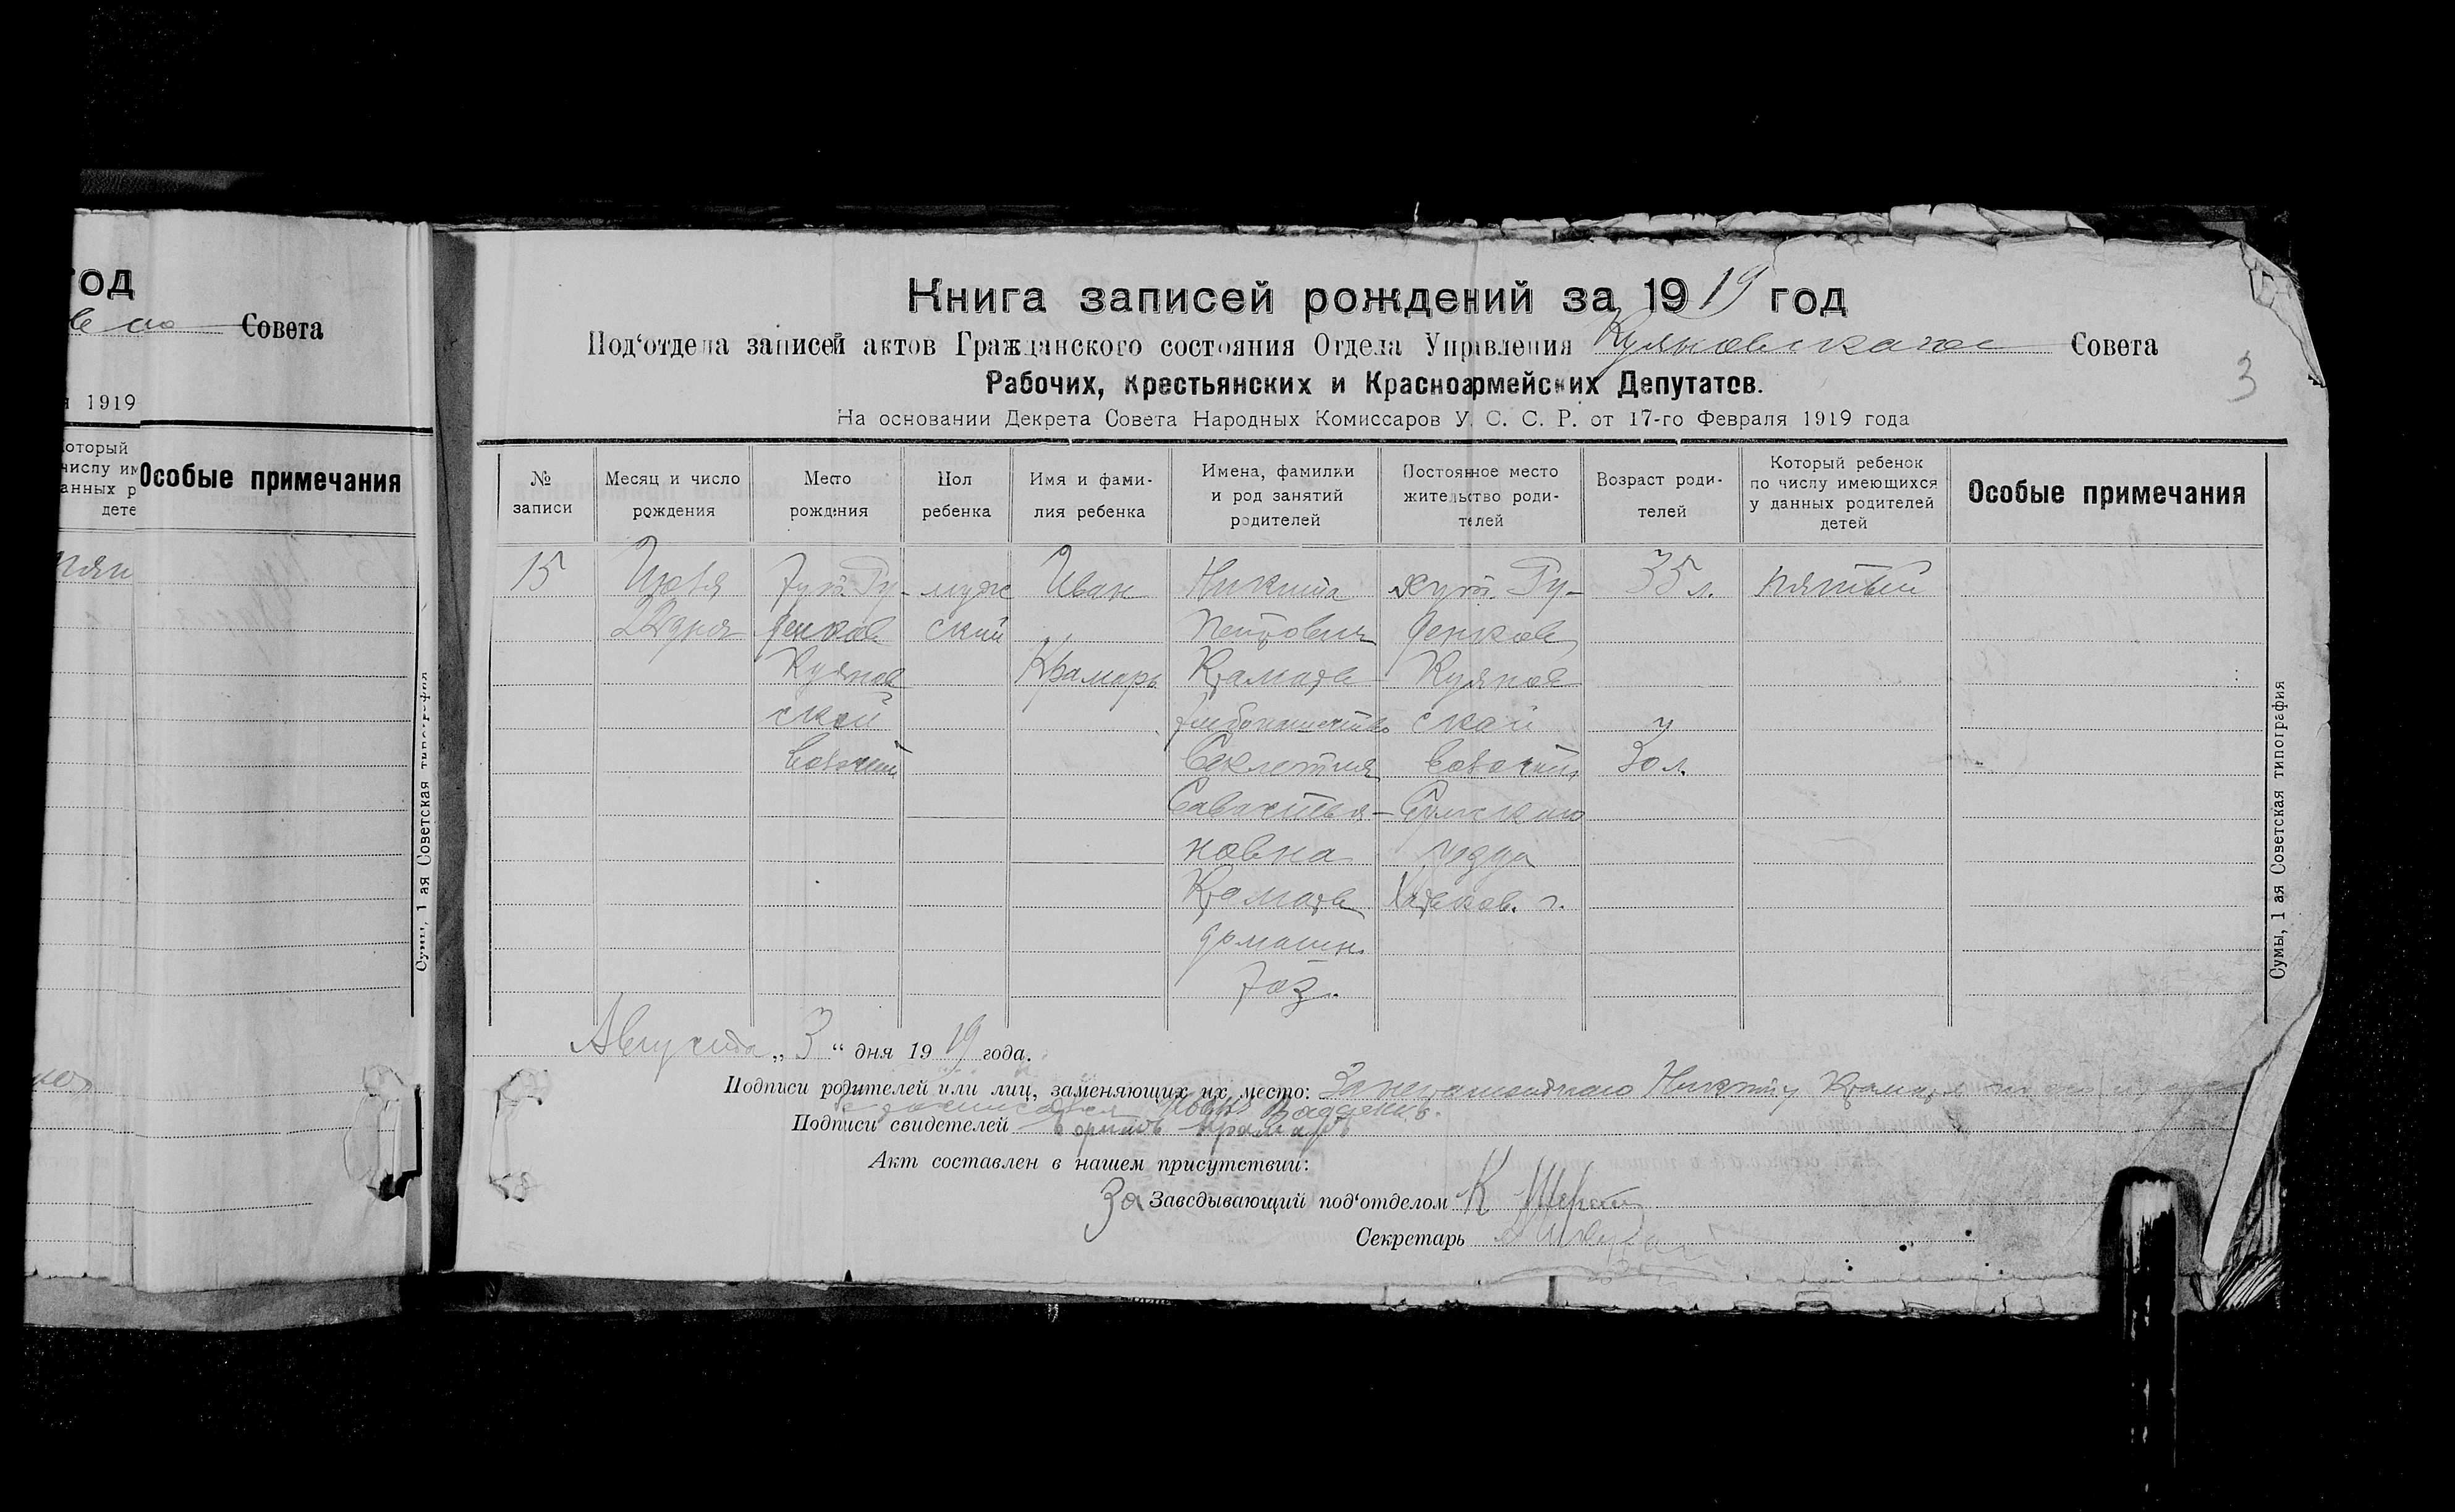 од
Совета
1919
оторый
числу им
анных р
дете
Особые примечания
Сумы, 1 ая Советская типография
Книга записей рождений за 1919 год
Под'отдела записей актов Гражданского состояния Отдела Управления Куяновскаго Совета
Рабочих, Крестьянских и Красноармейских Депутатов.
3
На основании Декрета Совета Народных Комиссаров У. С. С. Р. от 17-го Февраля 1919 года
№ записи
Месяц и число рождения
Место рождения
Пол ребенка
Имя и фамилия ребенка
Имена, фамилии и род занятий родителей
Постоянное место жительство родителей
Возраст родителей
Который ребенок по числу имеющихся у данных родителей детей
Особые примечания
15 Июля хут. Ру- муж Иван Никита хут. Ру- 35 л. пятый
22 дня денков ский Петрович денков
Куянов Крамарь Крамарь Куянов
ской хлебопашество ской
волости Секлетия волости 30 л.
Савастья- Сумскаго
новна уезда
Крамарь Харьков. г.
домашн.
хоз.
Августа „3“ дня 1919 года.
Подписи родителей или лиц, заменяющих их место: За неграмотнаго Никиту Крамаря по его
росписался
Подписи свидетелей Крамарь
Акт составлен в нашем присутствии:
За Заведывающий под'отделом К
Секретарь
Сумы, 1 ая Советская типография